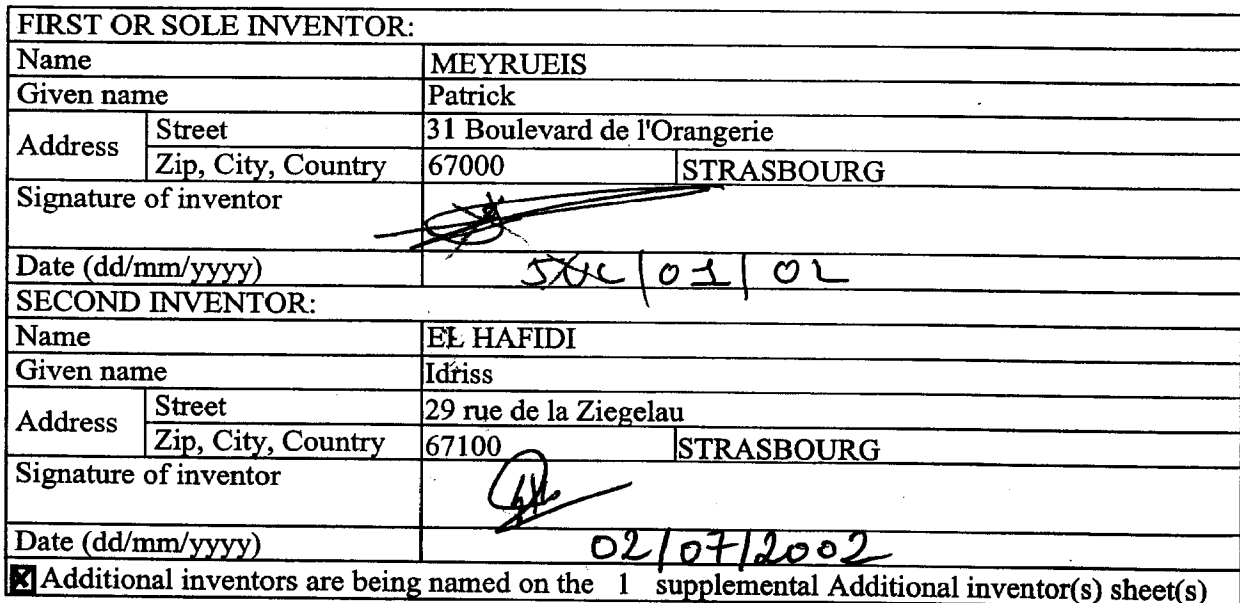 FIRST OR SOLE INVENTOR:
Name MEYRUEIS
Given name Patrick
Address Street 31 Boulevard de l'Orangerie
Zip, City, Country 67000 STRASBOURG
Signature of inventor
Date (dd/mm/yyyy) |01|02
SECOND INVENTOR:
Name EL HAFIDI
Given name Idriss
Address Street 29 rue de la Ziegelau
Zip, City, Country 67100 STRASBOURG
Signature of inventor
Date (dd/mm/yyyy) 02/07/2002
Additional inventors are being named on the 1 supplemental Additional inventor(s) sheet(s)